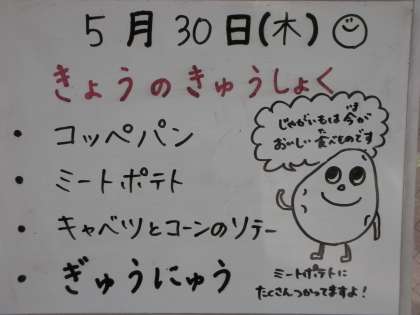 5月30日(木)
きょうのきゅうしょく
・コッペパン
・ミートポテト
・キャベツとコーンのソテー
・ぎゅうにゅう
じゃがいもは今(いま)が
おいしい食(た)べものです
ミートポテトに
たくさんつかってますよ!